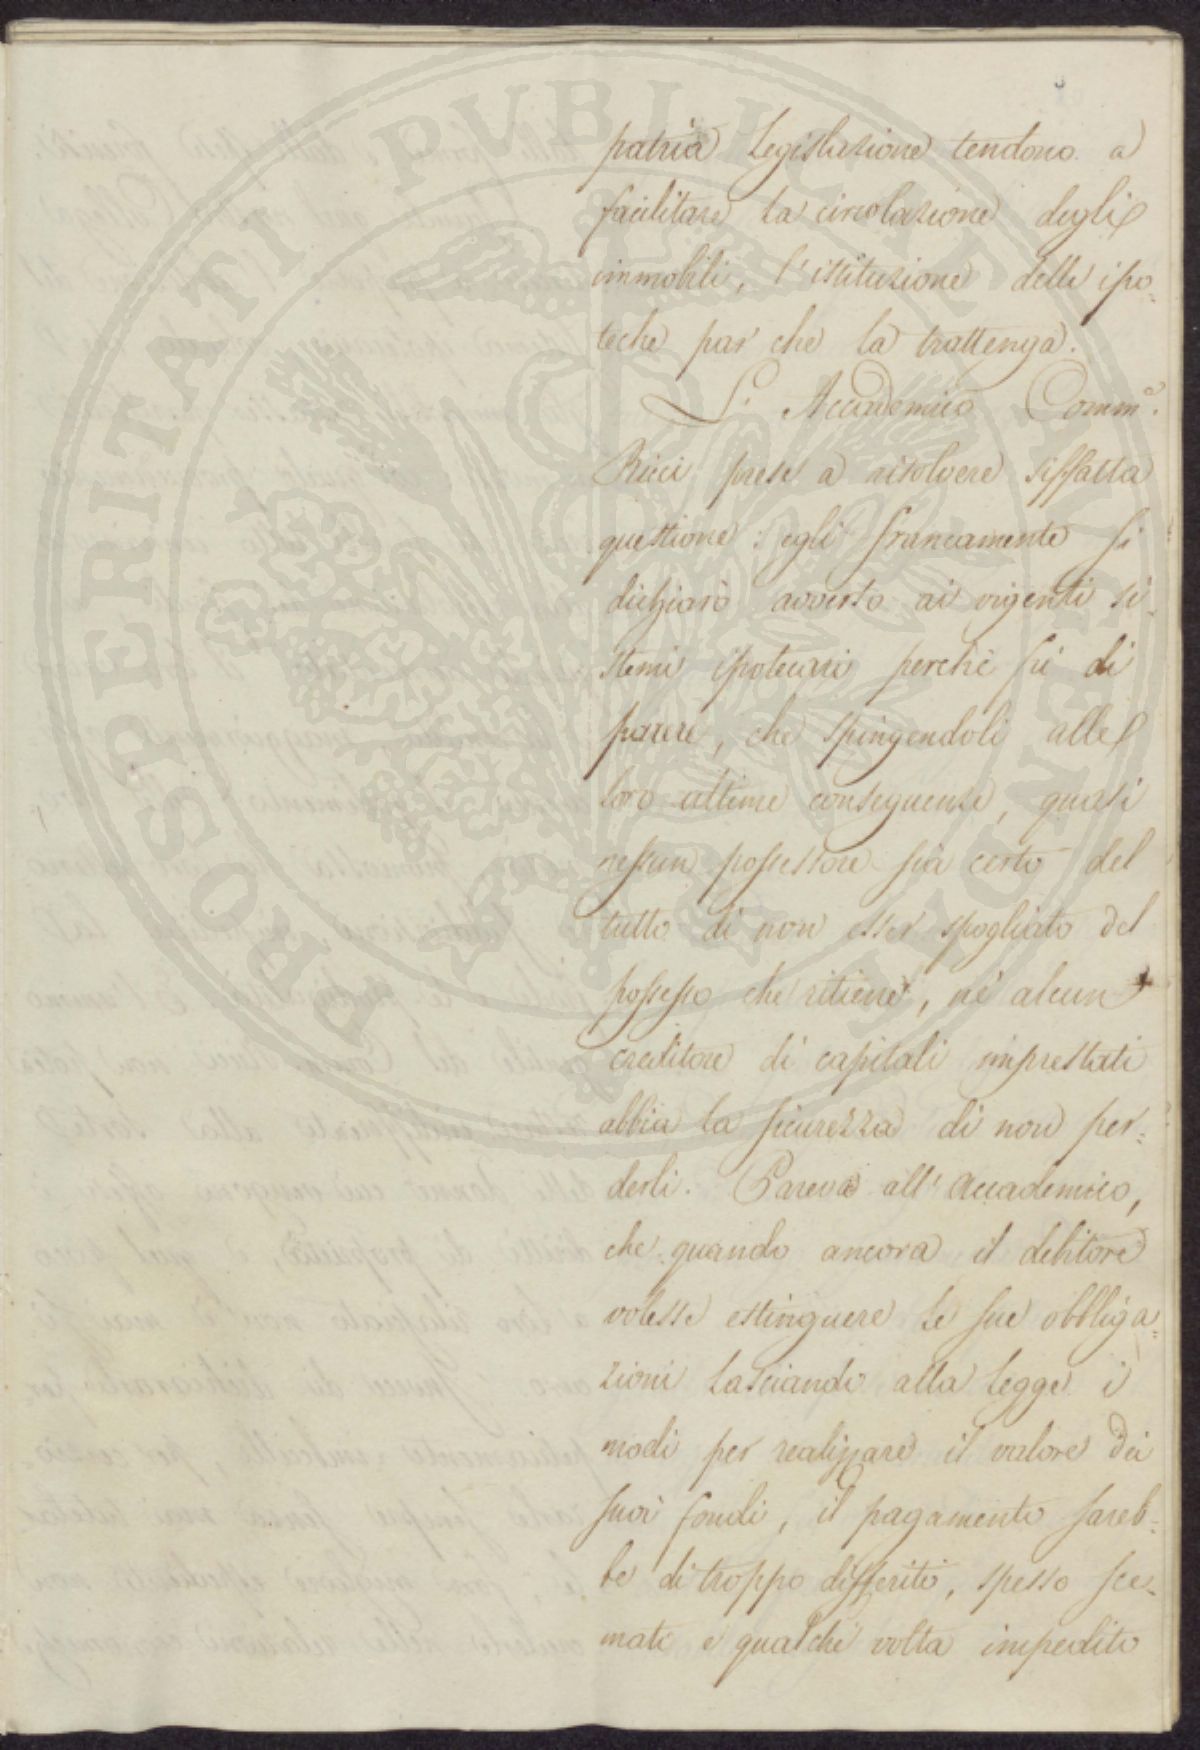 patria Legislazione tendono a
facilitare la circolazione degli
immobili, l'istituzione delle ipo-
teche par che la trattenga.
L'Accademico Comm.e
Ricci prese a risolvere siffatta
questione: egli francamente si
dichiarò avverso ai vigenti si-
stemi ipotecari perchè fu di
parere, che spingendoli alle
loro ultime conseguenze, quasi
nessun possessore sia certo del
tutto di non esser spogliato del
possesso che ritiene, nè alcun
creditore di capitali imprestati
abbia la sicurezza di non per-
derli. Pareva all'Accademico,
che quando ancora il debitore
volesse estinguere le sue obbliga-
zioni lasciando alla legge i
modi per realizzare il valore dei
suoi fondi, il pagamento sareb-
be di troppo differito, spesso sce-
mato e qualche volta impedito
PROSPERITATI PUBLICAE AUGENDAE